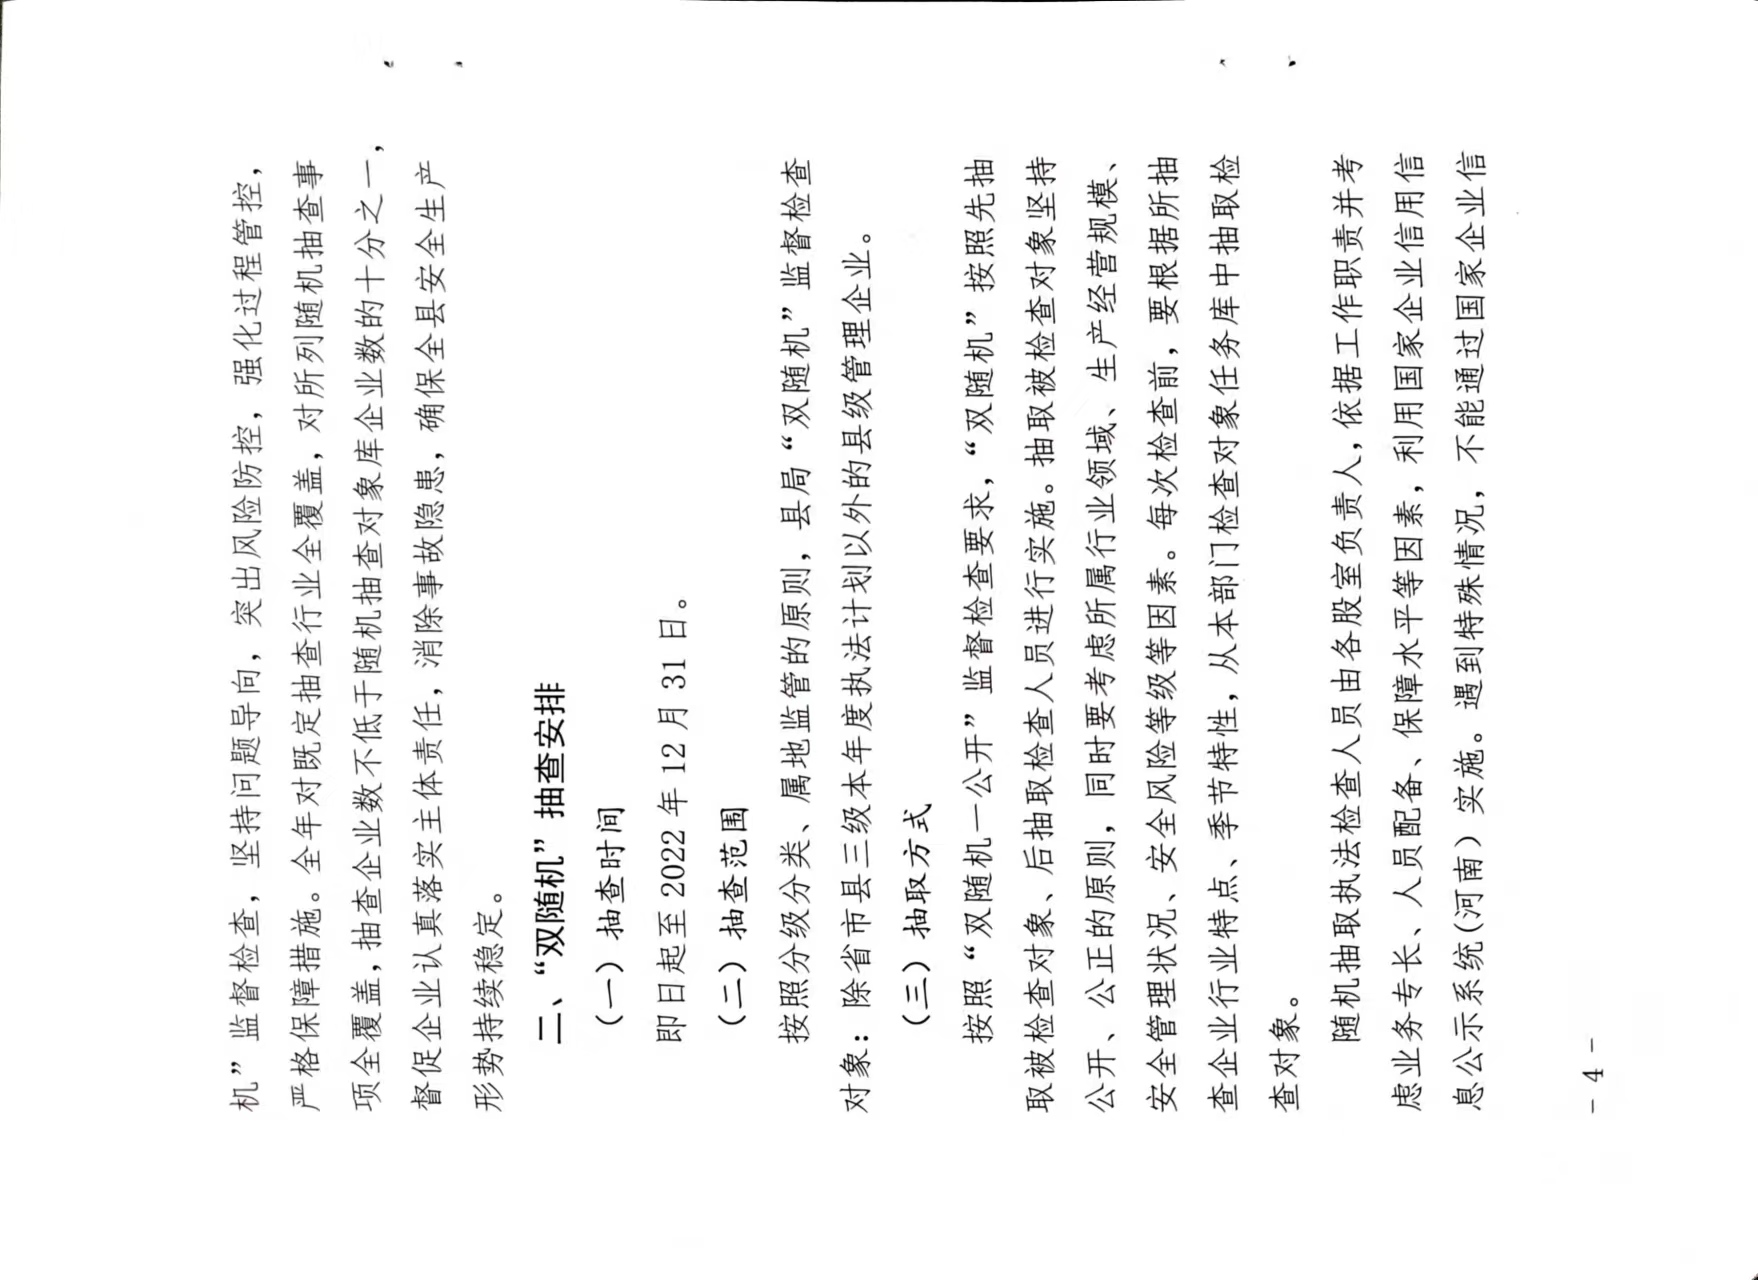 机”监督检查，坚持问题导向，突出风险防控，强化过程管控，
严格保障措施。全年对既定抽查行业全覆盖，对所列随机抽查事
项全覆盖,抽查企业数不低于随机抽查对象库企业数的十分之一,
督促企业认真落实主体责任，消除事故隐患，确保全县安全生产
形势持续稳定。
二、“双随机”抽查安排
（一）抽查时间
即日起至 2022 年 12 月 31 日。
（二）抽查范围
按照分级分类、属地监管的原则，县局“双随机”监督检查
对象：除省市县三级本年度执法计划以外的县级管理企业。
（三）抽取方式
按照“双随机一公开”监督检查要求，“双随机”按照先抽
取被检查对象、后抽取检查人员进行实施。抽取被检查对象坚持
公开、公正的原则，同时要考虑所属行业领域、生产经营规模、
安全管理状况、安全风险等级等因素。每次检查前，要根据所抽
查企业行业特点、季节特性，从本部门检查对象任务库中抽取检
查对象。
随机抽取执法检查人员由各股室负责人,依据工作职责并考
虑业务专长、人员配备、保障水平等因素，利用国家企业信用信
息公示系统(河南）实施。遇到特殊情况，不能通过国家企业信
- 4 -